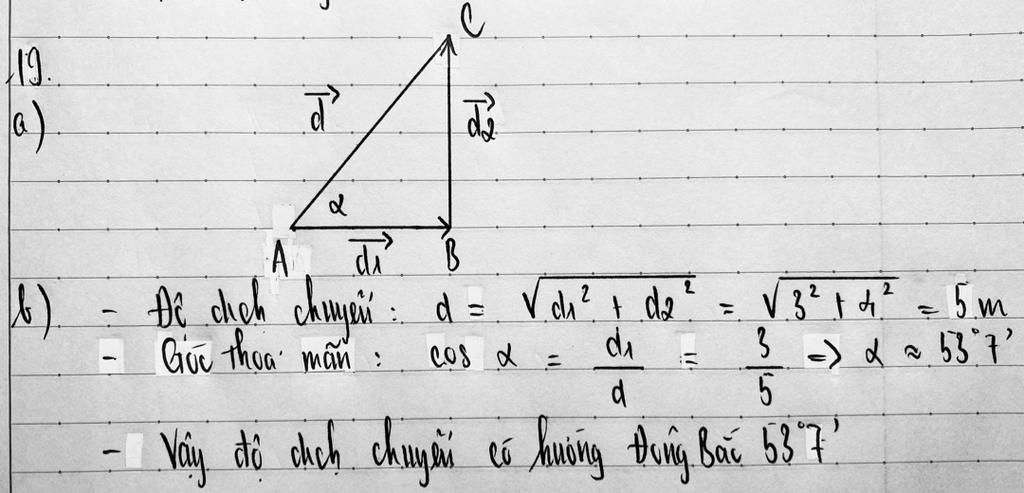 19.
a)
C
d⃗
d⃗2
α
A
d⃗1
B
b) - Độ dịch chuyển : d = √(d1² + d2²) = √(3² + 4²) = 5 m
- Góc thoả mãn : cos α = d1/d = 3/5 => α ≈ 53°7'
- Vậy độ dịch chuyển có hướng Đông Bắc 53°7'